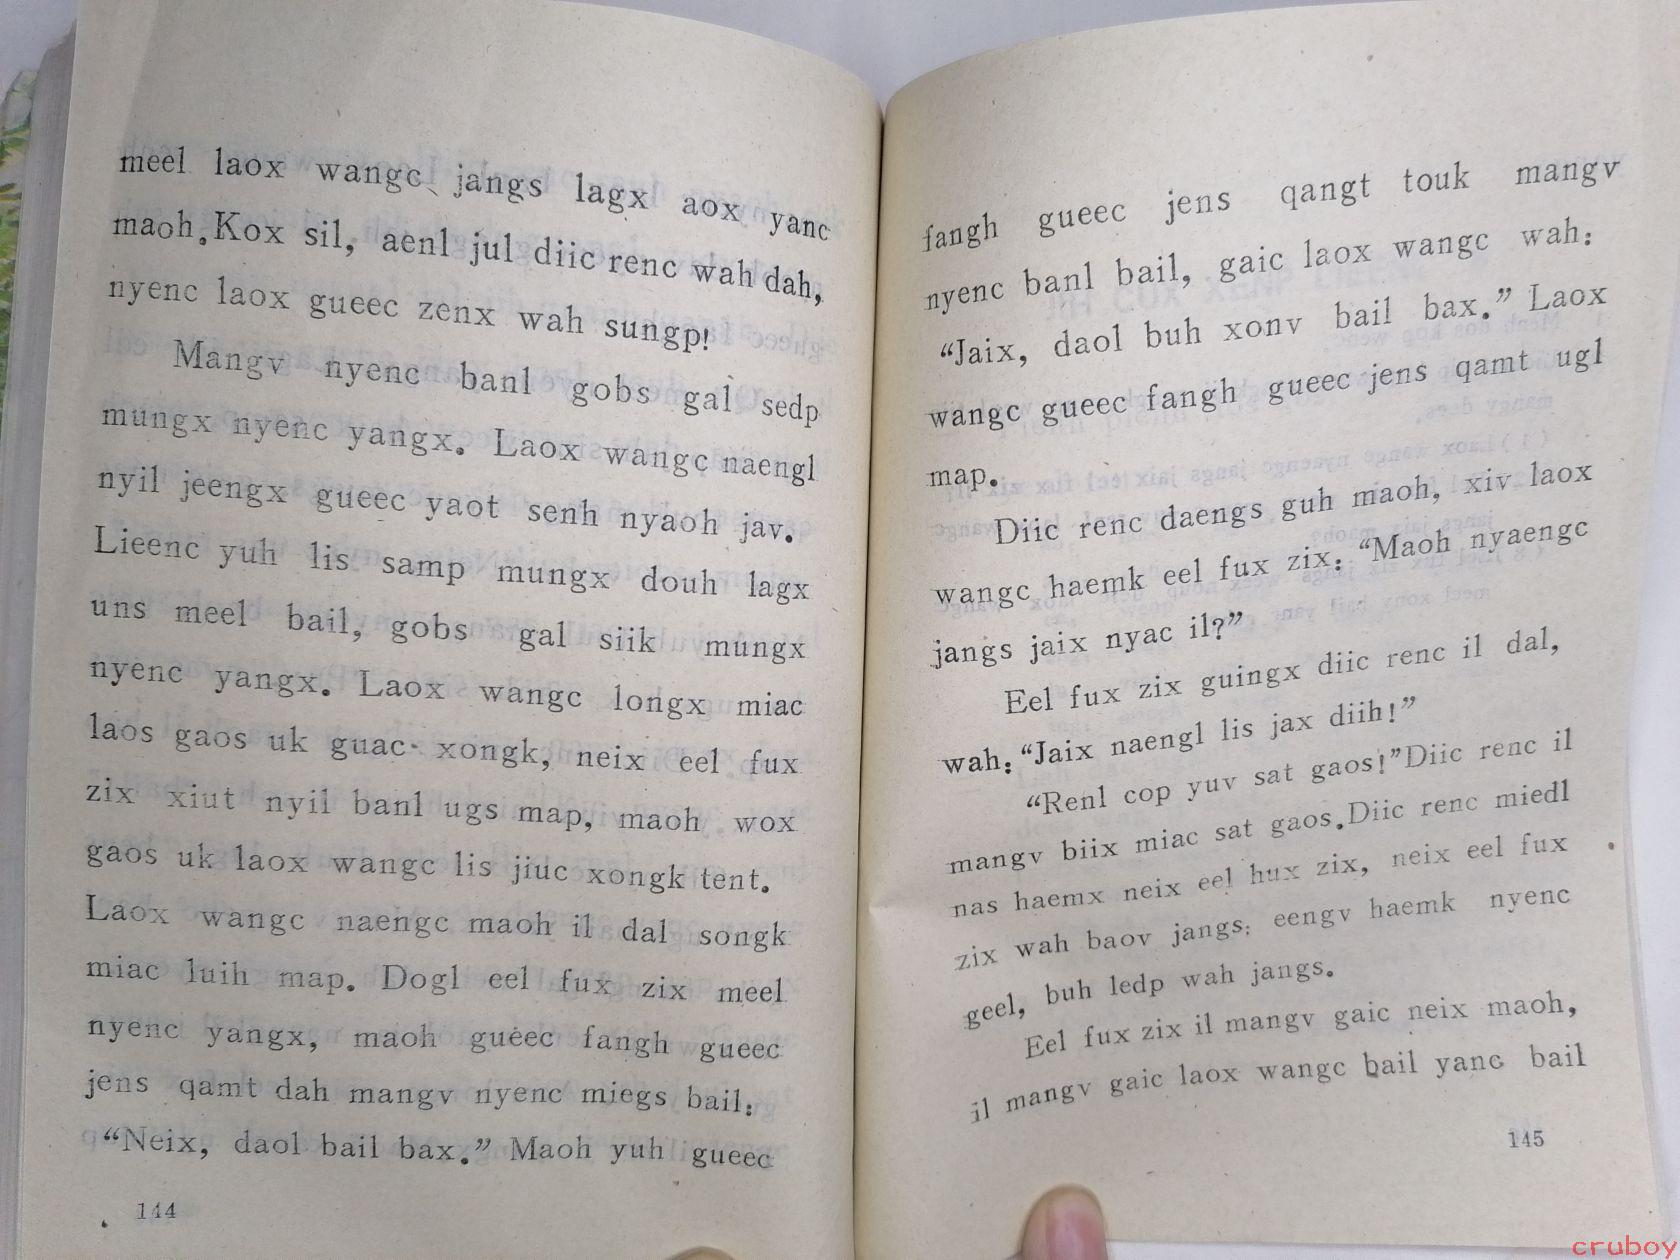 meel laox wangc、jangs lagx aox yanc
maoh.Kox sil, aenl jul diic renc wah dah,
nyenc laox gueec zenx wah sungp!
Mangv nyenc banl gobs gal sedp
mungx nyenc yangx. Laox wangc naengl
nyil jeengx gueec yaot senh nyaoh jav.
Lieenc yuh lis samp mungx douh lagx
uns meel bail, gobs gal siik mungx
nyenc yangx. Laox wangc longx miac
laos gaos uk guac xongk, neix eel fux
zix xiut nyil banl ugs map, maoh wox
gaos uk laox wangc lis jiuc xongk tent.
Laox wangc naengc maoh il dal songk
miac luih map. Dogl eel fux zix meel
nyenc yangx, maoh gueec fangh gueec
jens qamt dah mangv nyenc miegs bail:
“Neix, daol bail bax.” Maoh yuh gueec
144
fangh gueec jens qangt touk mangv
nyenc banl bail, gaic laox wangc wah:
“Jaix, daol buh xonv bail bax.” Laox
wangc gueec fangh gueec jens qamt ugl
map.
Diic renc daengs guh maoh, xiv laox
wangc haemk eel fux zix: “Maoh nyaengc
jangs jaix nyac il?”
Eel fux zix guingx diic renc il dal,
wah: “Jaix naengl lis jax diih!”
“Renl cop yuv sat gaos!”Diic renc il
mangv biix miac sat gaos.Diic renc miedl
nas haemx neix eel hux zix, neix eel fux
zix wah baov jangs; eengv haemk nyenc
geel, buh ledp wah jangs.
Eel fux zix il mangv gaic neix maoh,
il mangv gaic laox wangc bail yanc bail
145
cruboy